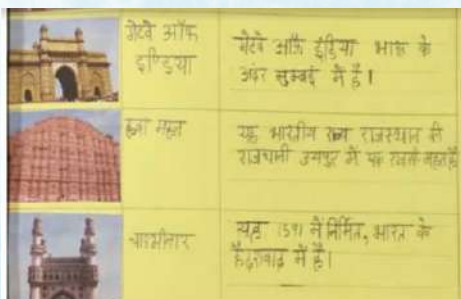 गेटवे ऑफ
इण्डिया
गेटवे ऑफ इंडिया भारत के
अंदर मुम्बई में है।
हवा महल
यह भारतीय राज्य राजस्थान की
राजधानी जयपुर में यह महल है
चारमीनार
यह 1591 में निर्मित, भारत के
हैदराबाद में है।